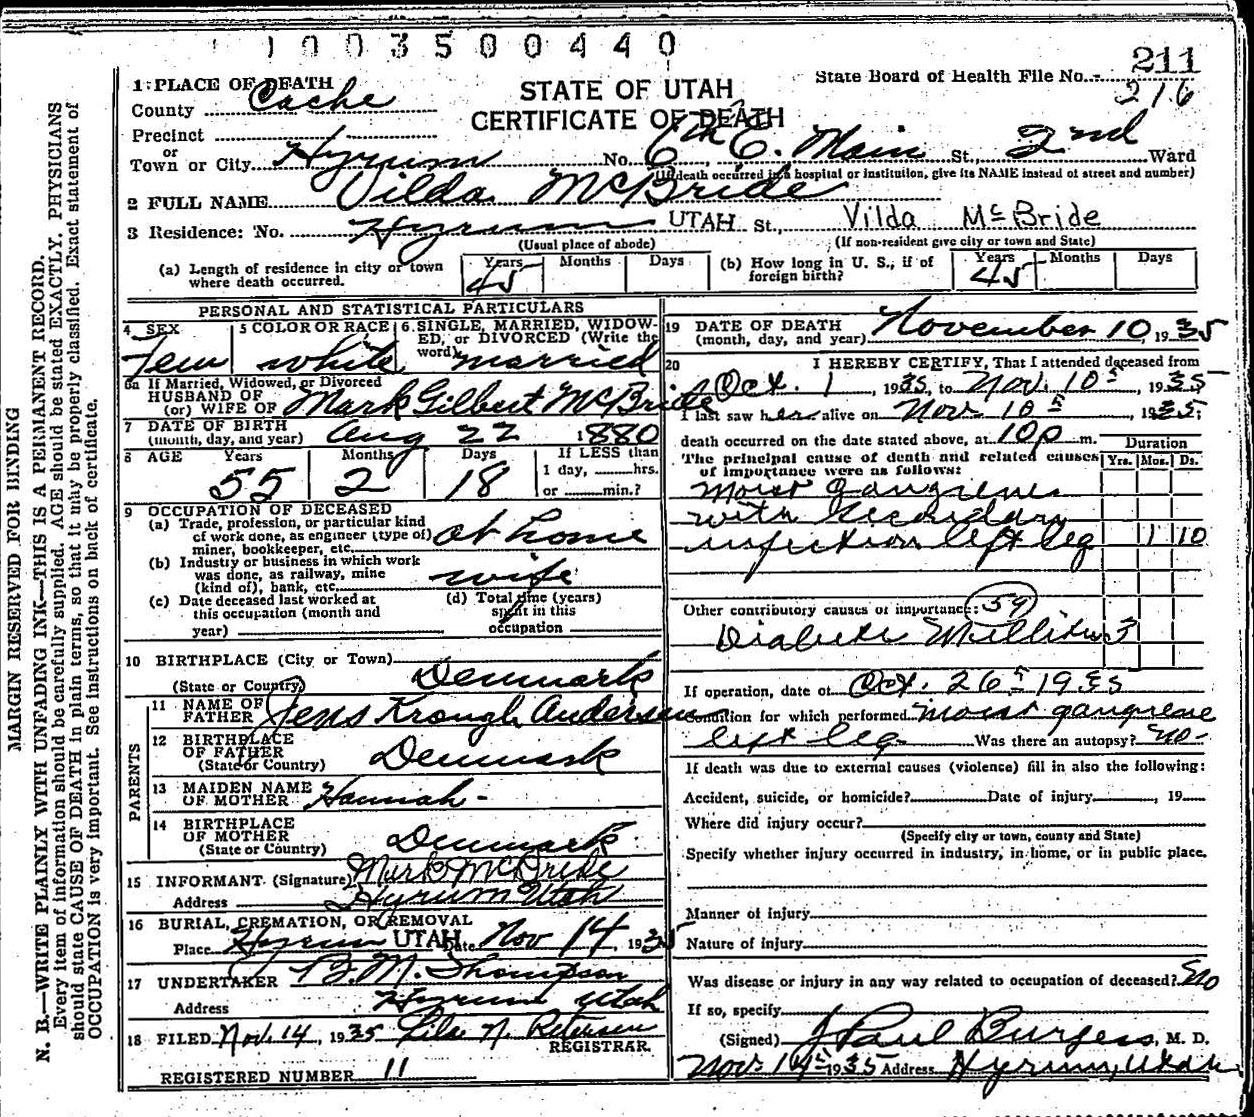 1003500440
211
State Board of Health File No.
216
1 PLACE OF DEATH
County Cache
STATE OF UTAH
CERTIFICATE OF DEATH
Precinct
or
Town or City Hyrum No. 6th E. Main St., 2nd Ward
(If death occurred in a hospital or institution, give its NAME instead of street and number)
2 FULL NAME Vilda McBride
3 Residence: No. Hyrum UTAH St., Vilda McBride
(Usual place of abode) (If non-resident give city or town and State)
(a) Length of residence in city or town where death occurred. Years 45 Months Days
(b) How long in U. S., if of foreign birth? Years 45 Months Days
PERSONAL AND STATISTICAL PARTICULARS
4 SEX Fem
5 COLOR OR RACE white
6. SINGLE, MARRIED, WIDOWED, or DIVORCED (Write the word) married
6a If Married, Widowed, or Divorced
HUSBAND OF
(or) WIFE OF Mark Gilbert McBride
7 DATE OF BIRTH
(month, day, and year) Aug 22 1880
8 AGE Years 55 Months 2 Days 18 If LESS than
1 day, hrs.
or min.?
9 OCCUPATION OF DECEASED
(a) Trade, profession, or particular kind
of work done, as engineer (type of)
miner, bookkeeper, etc. at home
(b) Industry or business in which work
was done, as railway, mine
(kind of), bank, etc. wife
(c) Date deceased last worked at
this occupation (month and
year)
(d) Total time (years)
spent in this
occupation
10 BIRTHPLACE (City or Town)
(State or Country) Denmark
PARENTS
11 NAME OF
FATHER Jens Krough Andersen
12 BIRTHPLACE
OF FATHER
(State or Country) Denmark
13 MAIDEN NAME
OF MOTHER Hannah -
14 BIRTHPLACE
OF MOTHER
(State or Country) Denmark
15 INFORMANT (Signature) Mark McBride
Address Hyrum Utah
16 BURIAL, CREMATION, OR REMOVAL
Place Hyrum UTAH Date Nov 14, 1935
17 UNDERTAKER B. M. Thompson
Address Hyrum Utah
18 FILED Nov. 14, 1935 Lila N. Petersen
REGISTRAR.
REGISTERED NUMBER 11
19 DATE OF DEATH
(month, day, and year) November 10, 1935
20 I HEREBY CERTIFY, That I attended deceased from
Oct. 1 1935, to Nov. 10 1935
I last saw her alive on Nov 10, 1935;
death occurred on the date stated above, at 10 p m.
Duration
The principal cause of death and related causes
of importance were as follows: Yrs. Mos. Ds.
moist gangrene
with secondary
infection left leg 1 10
Other contributory causes of importance: 59
Diabetes Mellitus 3
If operation, date of Oct. 26 1935
Condition for which performed moist gangrene
left leg Was there an autopsy? no
If death was due to external causes (violence) fill in also the following:
Accident, suicide, or homicide? Date of injury , 19
Where did injury occur?
(Specify city or town, county and State)
Specify whether injury occurred in industry, in home, or in public place.
Manner of injury
Nature of injury
Was disease or injury in any way related to occupation of deceased? no
If so, specify
(Signed) J Paul Burgess, M. D.
Nov. 14 1935 Address Hyrum, Utah
MARGIN RESERVED FOR BINDING
N. B.—WRITE PLAINLY WITH UNFADING INK—THIS IS A PERMANENT RECORD.
Every item of information should be carefully supplied. AGE should be stated EXACTLY. PHYSICIANS
should state CAUSE OF DEATH in plain terms, so that it may be properly classified. Exact statement of
OCCUPATION is very important. See instructions on back of certificate.